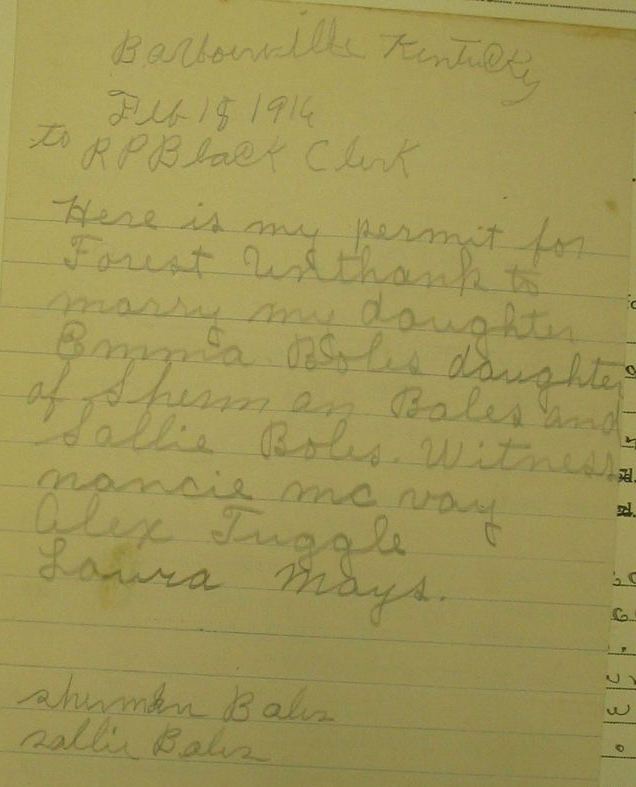 Barbourville Kentucky
Feb 18 1916
to R P Black Clerk
Here is my permit for
Forest Unthank to
marry my daughter
Emma Boles daughter
of Sherman Bales and
Sallie Boles. Witness
nancie mc vay
Alex Tuggle
Laura Mays.
sherman Bales
sallie Bales